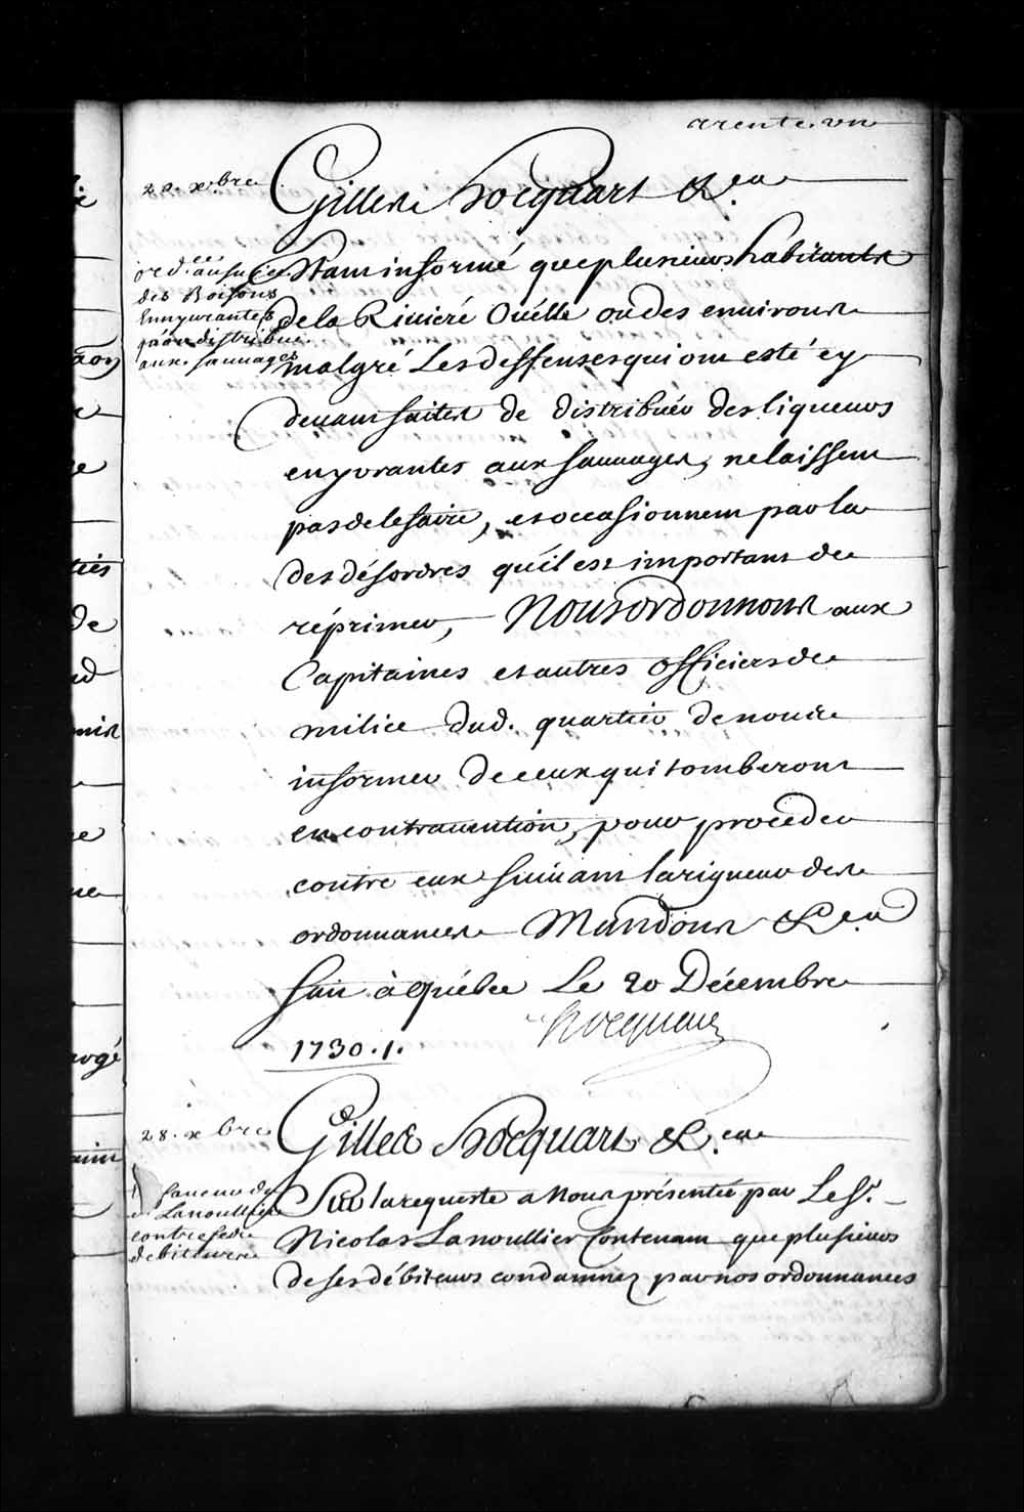 trente un
20. xbre
Gilles Hocquart &.ca
ordce au sujet
des Boisons
Ennyurantes
qu'on distribue
aux sauvages
Etant informé que plusieurs habitants
de la Riviere Ouëlle ou des environs
malgré Les deffenses qui ont esté cy
devant faites de distribuer des liqueurs
enyvrantes aux sauvages, ne laissent
pas de le faire, et occasionnent par la
des désordres qu'il est important de
réprimer, Nous ordonnons aux
Capitaines et autres officiers de
milice dud. quartier de nous
informer de ceux qui tomberont
en contravention, pour proceder
contre eux suivant la rigueur des
ordonnances Mandons &c.a
fait à Québec Le 20 Décembre
1730. /.
Hocquart
28. xbre
Gilles Hocquart &.ca
faveur de
Lanoullier
contre ses
debiteurs
Sur la requeste a Nous présentée par Le Sr.
Nicolas Lanoullier Contenant que plusieurs
de ses débiteurs condamnez par nos ordonnances